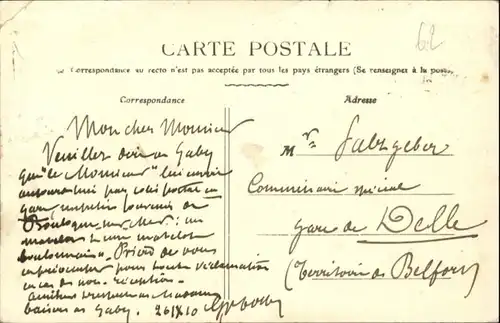 62
CARTE POSTALE
La Correspondance au recto n'est pas acceptée par tous les pays étrangers (Se renseigner à la poste)
Correspondance
Adresse
Mon cher Monsieur
Veuillez dire à Gaby
que "le Monsieur" lui envoie
aujourd'hui par colis postal en
gare un petit souvenir de
Boulogne sur Mer : un
matelot et une matelote
boulonnaise. Prière de vous
pour toute réclamation
en cas de non-réception.
Amitiés Madame
baisers à Gaby. 26 10
Mr
Salzgeber
Commissaire spécial
gare de Delle
(Territoire de Belfort)